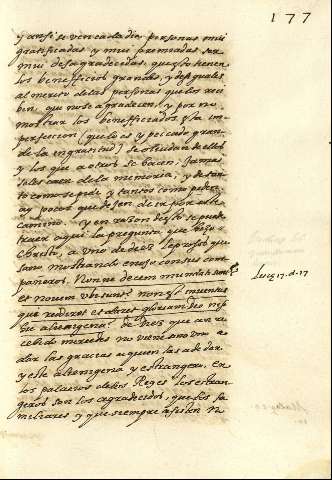 177
y ansi se ven cada dia personas mui
gratificadas y mui premiadas ser
mui desagradecidas, que esto tienen
los beneficios grandes, y desiguales
al merito de las personas que los reci
ben, que no se agradecen, y por no
mostrar los beneficiados su im
perfeccion (que lo es y peccado gran
de la ingratitud) se olvidan de ellos
y los que a otros se hacen, jamas
seles cae de la memoria; y de
como se pide y tantos como piden
ay pocos que dexen de ir por este
camino. y en razon desto se puede
traer aqui la pregunta que hizo
Christo, a uno de diez leprosos que
sano, mostrando enojo con sus com
pañeros. Nonne decem mundati sunt
et novem ubi sunt? non est inventus
qui rediret et daret gloriam deo nisi
hic alienigena? de diez que an re
cebido mercedes no viene sino uno a
dar las gracias a quien las a de dar
y este alienigena y estrangero, en
los palacios de los Reyes los estran
geros son los agradecidos, que los fa
miliares y que siempre asisten n
Luc. 17. d. 17